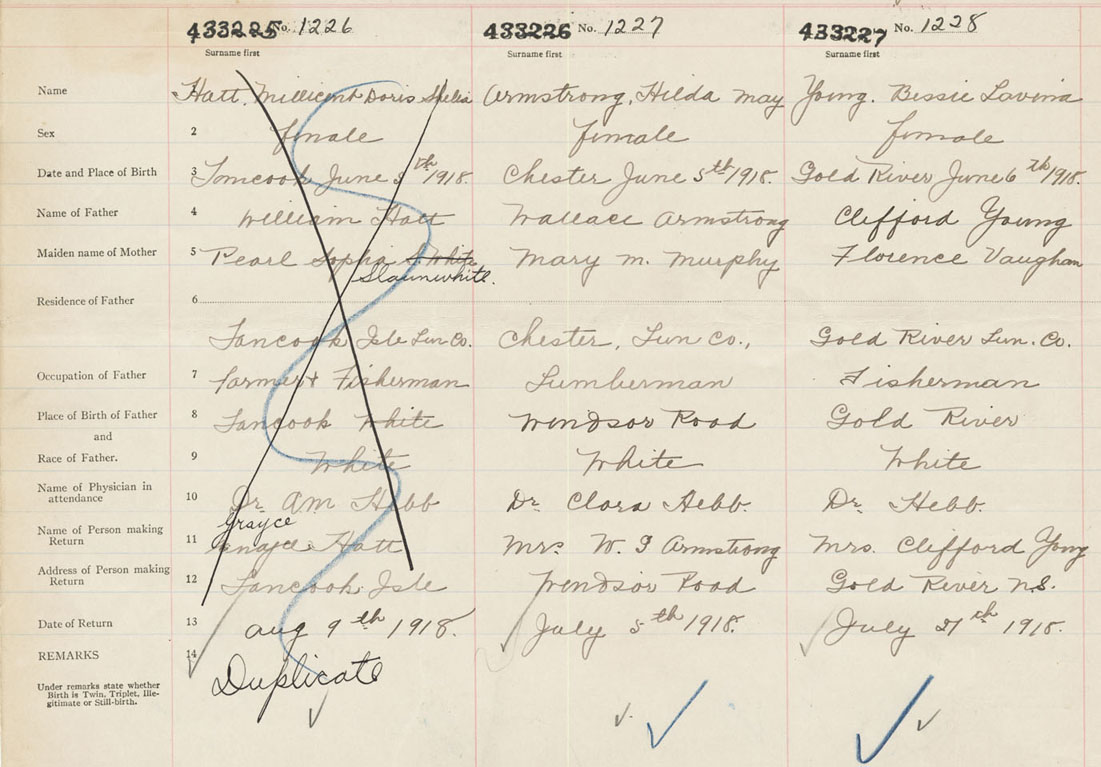 433225 No. 1226 433226 No. 1227 433227 No. 1228
Surname first Surname first Surname first
Name Hatt, Millicent Doris Armstrong, Hilda May Young. Bessie Lavina
Sex 2 female female female
Date and Place of Birth 3 Tancook June 5th 1918. Chester June 5th 1918. Gold River June 6th 1918.
Name of Father 4 William Hatt Wallace Armstrong Clifford Young
Maiden name of Mother 5 Pearl Sopha S. White Mary M. Murphy Florence Vaughan
Slaunwhite.
Residence of Father 6
Tancook Isle Lun Co. Chester, Lun Co., Gold River Lun. Co.
Occupation of Father 7 farmer & Fisherman Lumberman Fisherman
Place of Birth of Father 8 Tancook White Windsor Road Gold River
and
Race of Father. 9 White White White
Name of Physician in
attendance 10 Dr. A M Hebb Dr. Clara Hebb. Dr. Hebb.
Grayce
Name of Person making
Return 11 Hatt Mrs. W. I Armstrong Mrs. Clifford Young
Address of Person making
Return 12 Tancook Isle Windsor Road Gold River N.S.
Date of Return 13 Aug 9th 1918. July 5th 1918. July 27th 1918.
REMARKS 14 Duplicate
Under remarks state whether
Birth is Twin, Triplet, Ille-
gitimate or Still-birth.